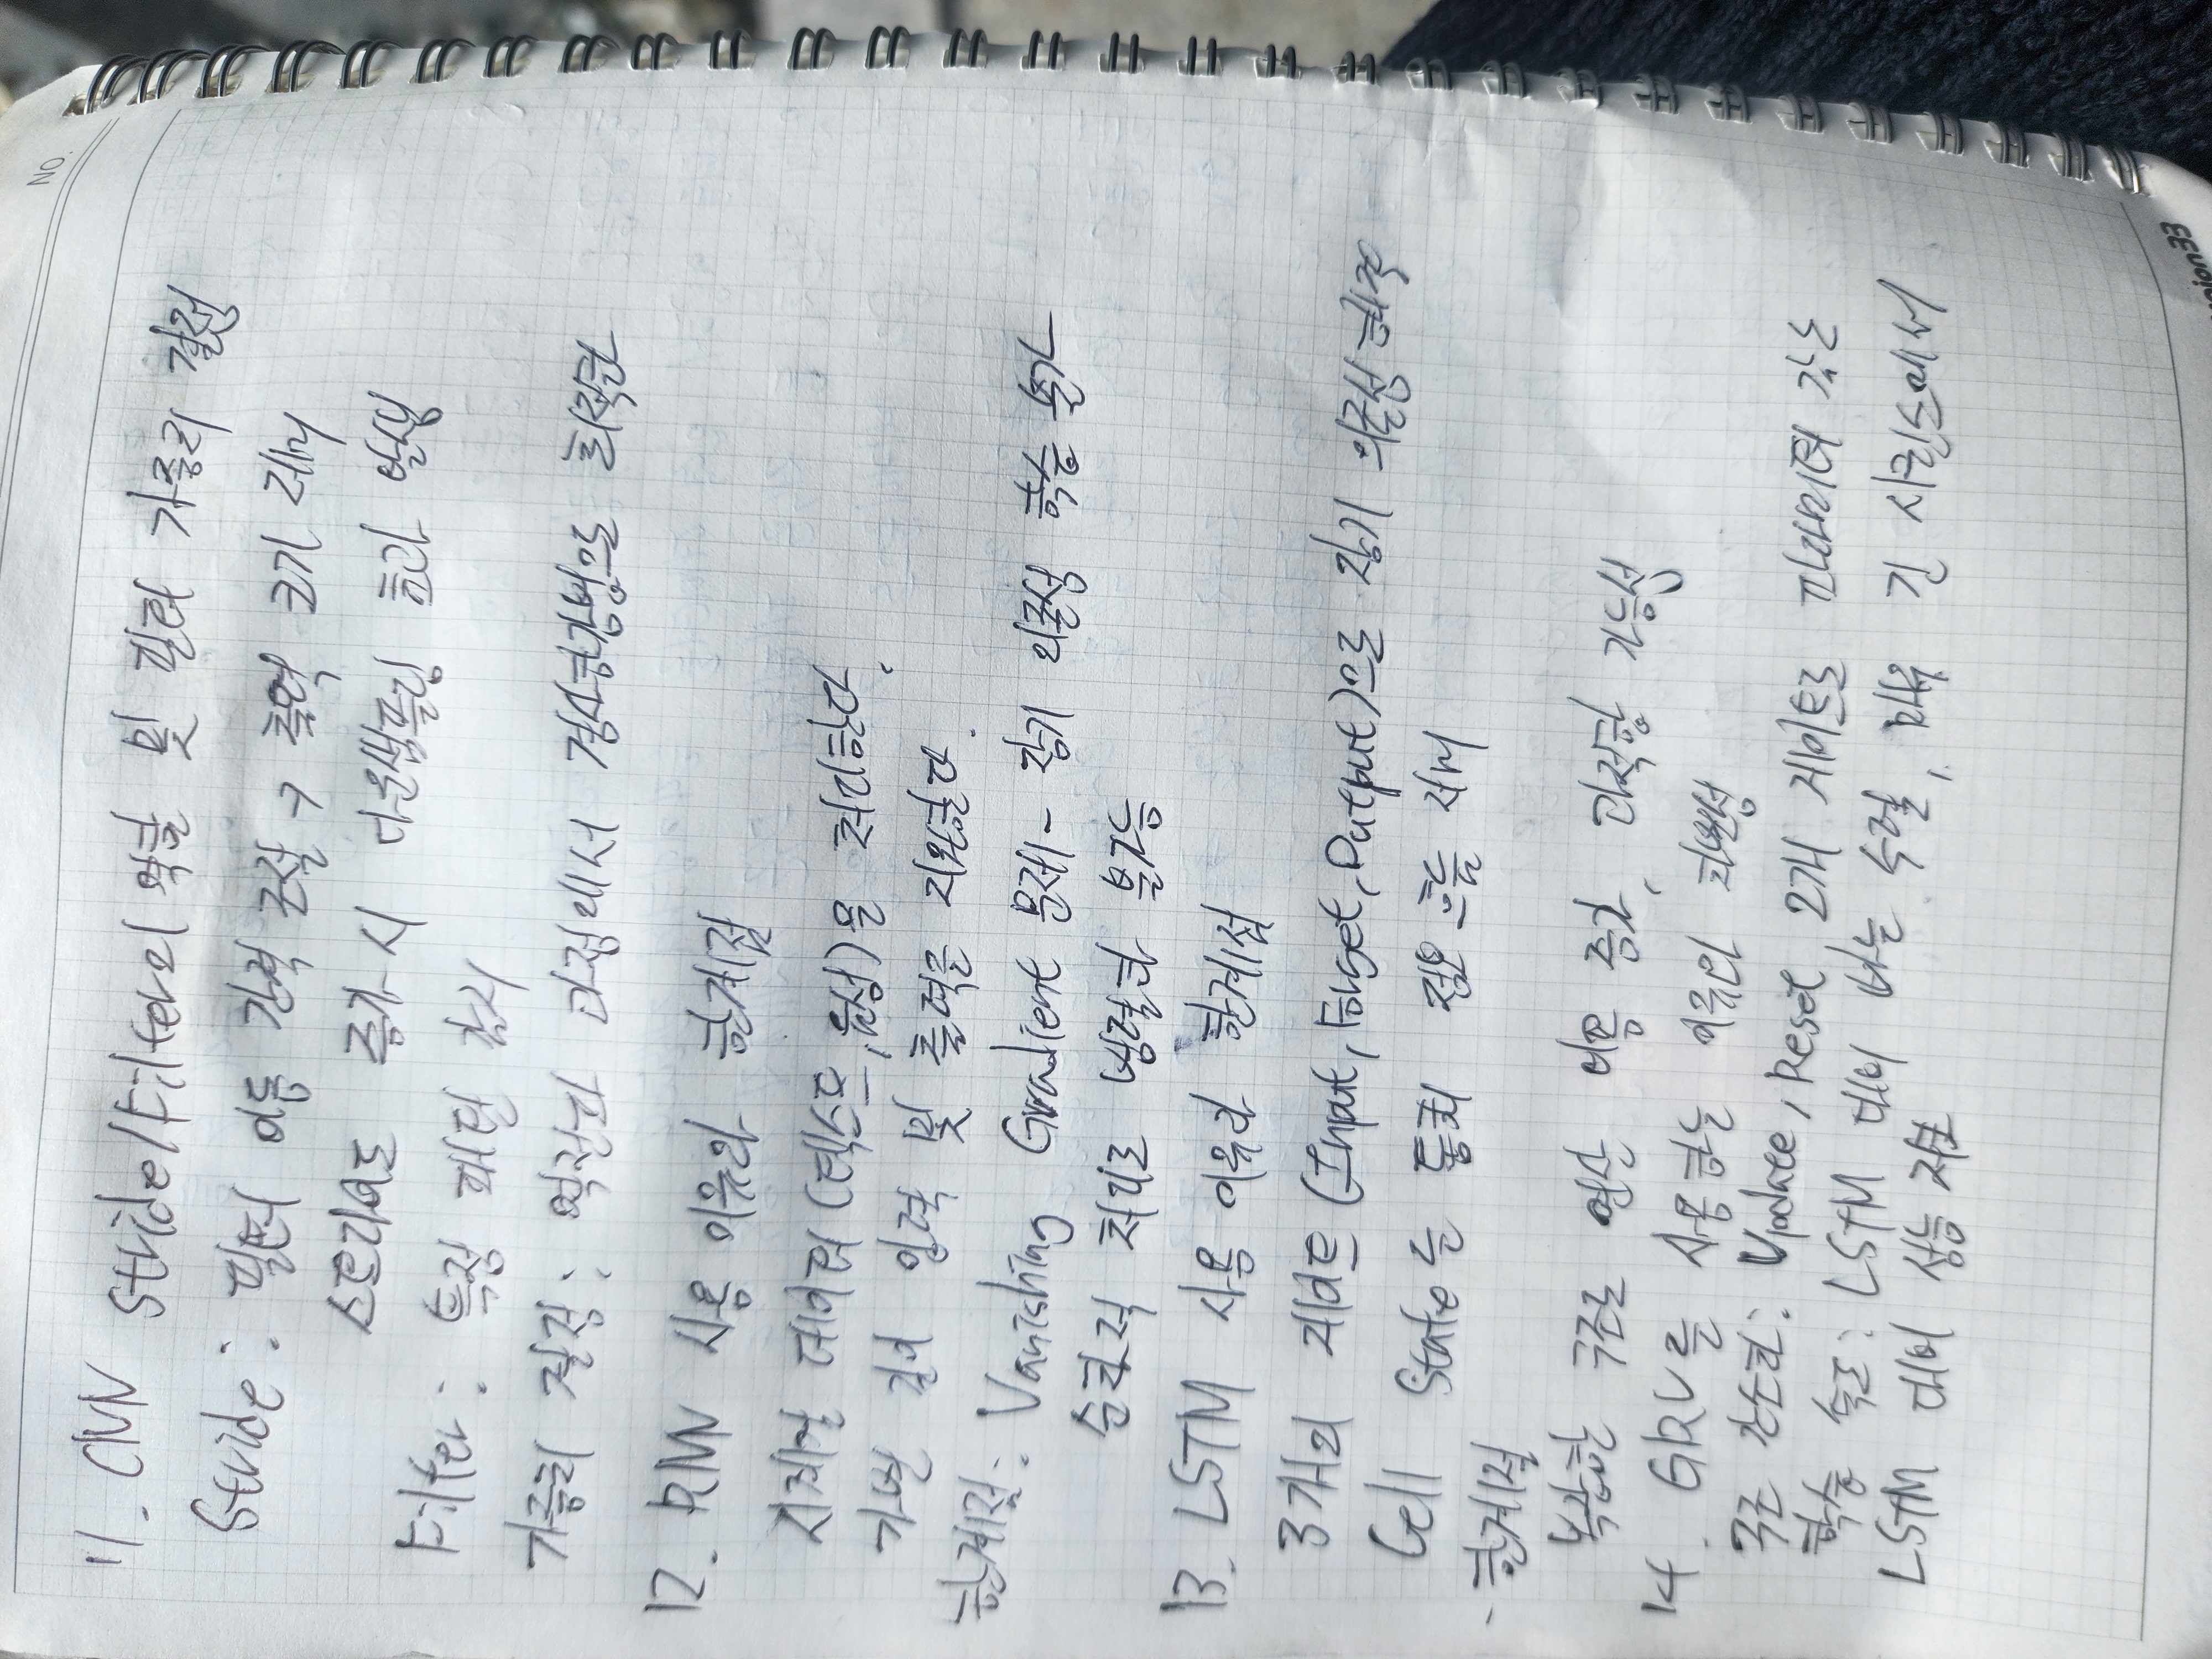 NO.
11. CNN Stride/Filter의 역할 및 필터 가중치 결정
Stride: 필터 이동 간격 조절 → 출력 크기 제어
스트라이드 증가 시 다운샘플링 효과 발생
Filter: 특정 패턴 감지
가중치 결정: 역전파 과정에서 경사하강법으로 최적화
12. RNN 사용 이유와 한계점
시계열 데이터(텍스트, 음성)을 처리한다.
가변 길이 입력 및 출력을 지원한다.
한계점: Vanishing Gradient 문제 - 장기 의존성 학습 불가
순차적 처리로 병렬화 불가능
13. LSTM 사용 이유와 한계점
3개의 게이트(Input, Forget, Output)으로 장기 의존성 해결
Cell State를 통해 정보 흐름 제어
- 한계점
복잡한 구조로 연산 비용 증가, 과적합 가능성
14. GRU를 사용하는 이유와 차별성
구조 간소화: Update, Reset 2개 게이트로 파라미터 감소
학습 속도: LSTM 대비 빠른 수렴, 매우 긴 시퀀스에서
LSTM 대비 성능 저하
nion33